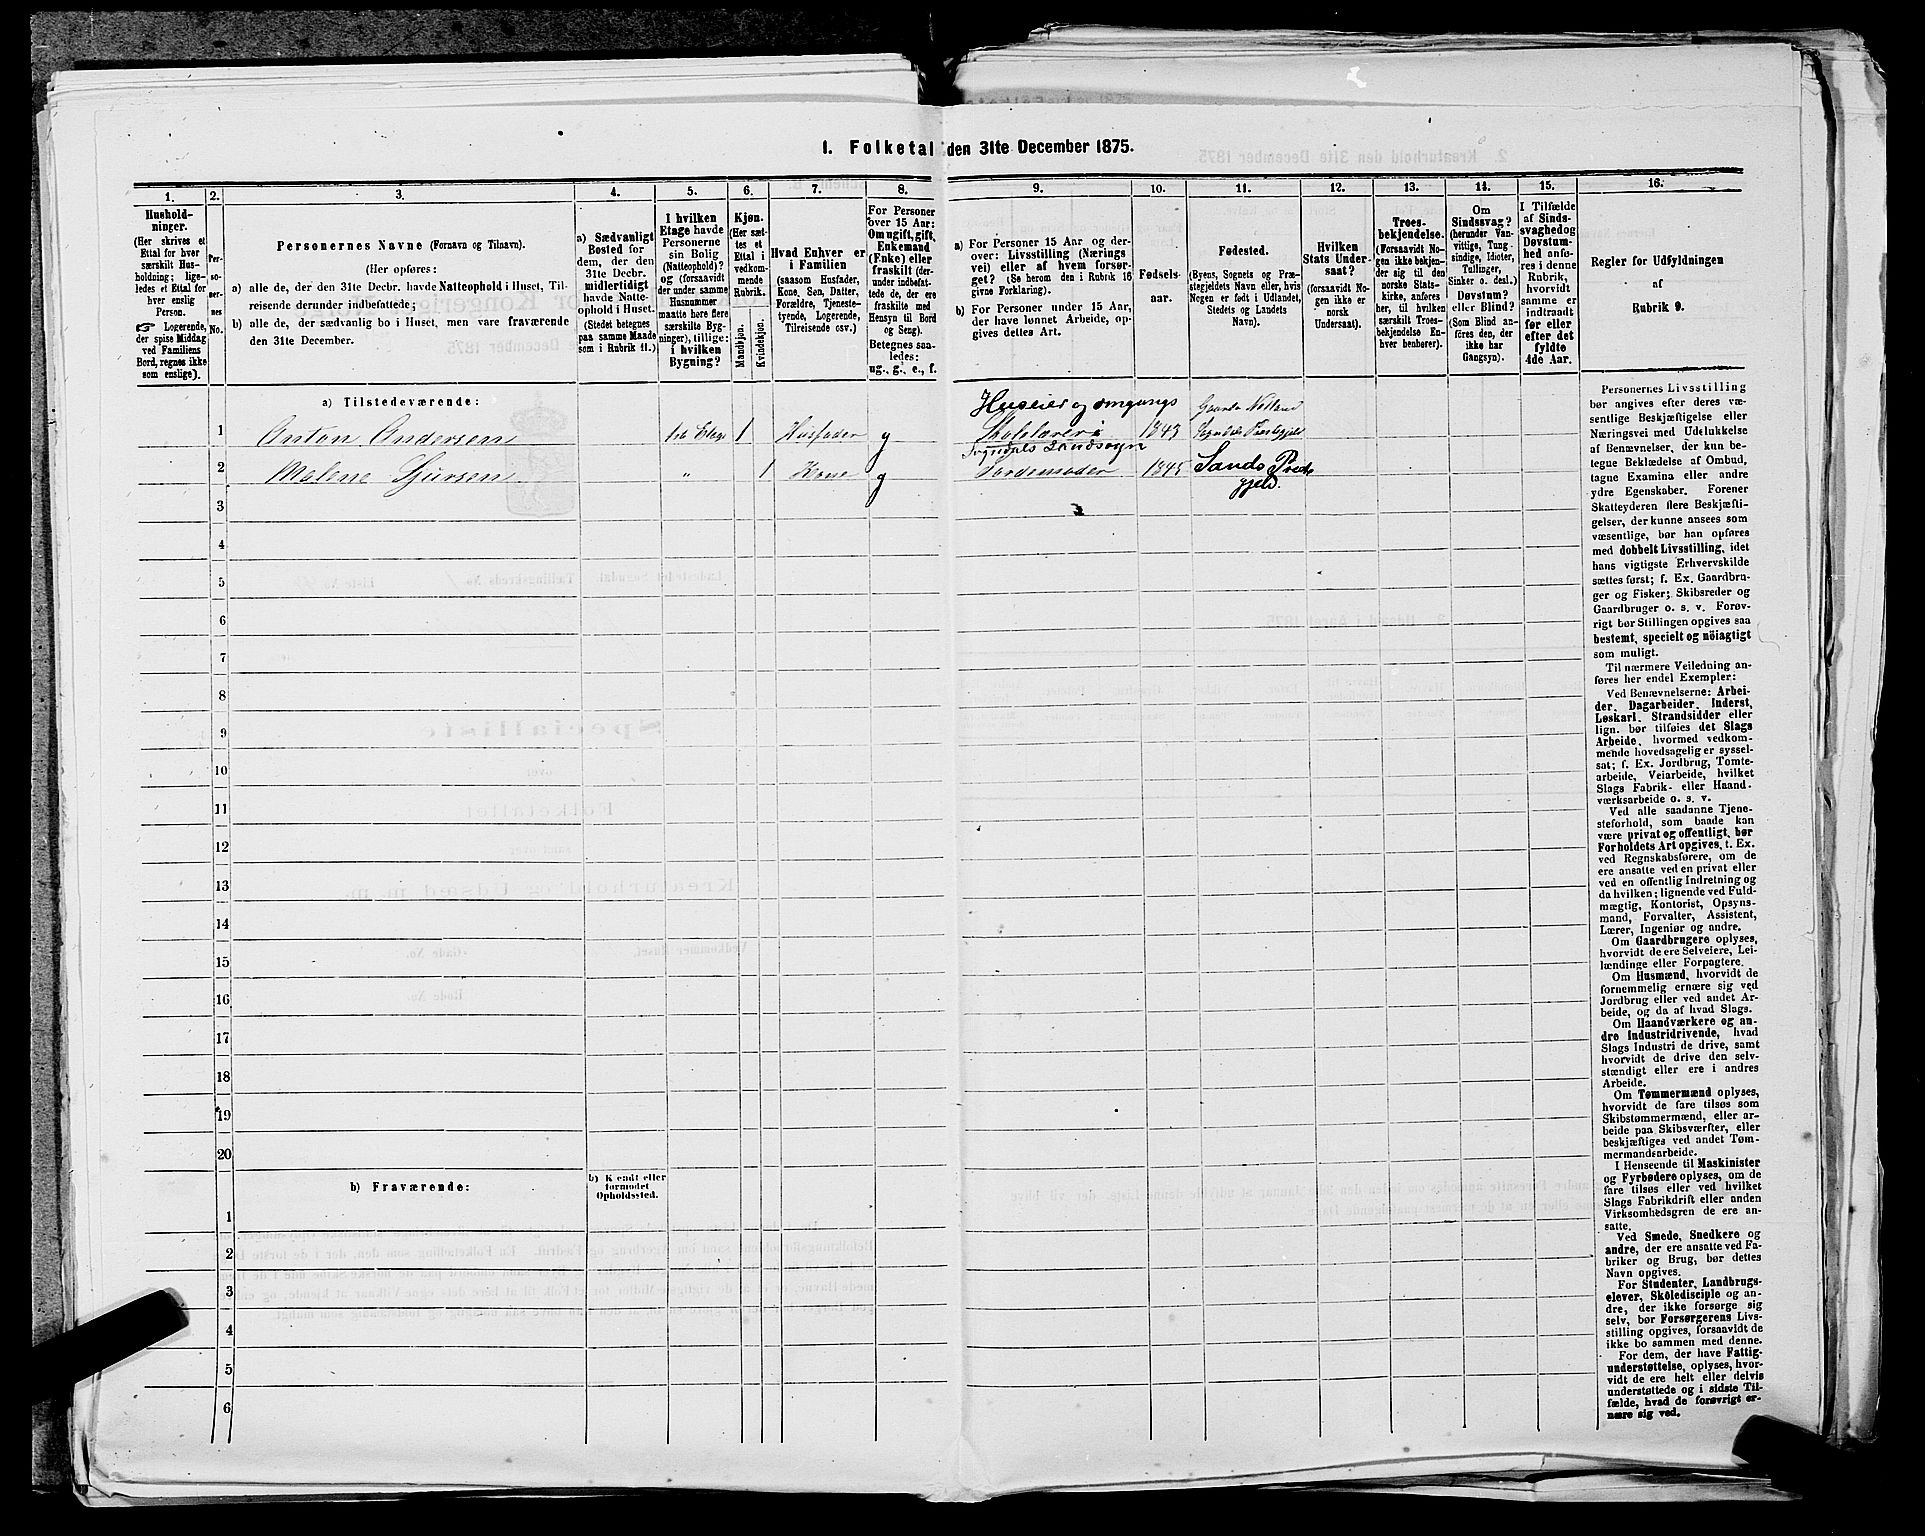 1. Folketal den 31te December 1875.
1. 2. 3. 4. 5. 6. 7. 8. 9. 10. 11. 12. 13. 14. 15. 16.
Hushold-
ninger.
(Her skrives et
Ettal for hver
særskilt Hus-
holdning; lige-
ledes et Ettal for
hver enslig
Person.
☞ Logerende,
der spise Middag
ved Familiens
Bord, regnes ikke
som enslige).
Per-
so-
ner-
nes
No.
Personernes Navne (Fornavn og Tilnavn).
(Her opføres:
a) alle de, der den 31te Decbr. havde Natteophold i Huset, Til-
reisende derunder indbefattede;
b) alle de, der sædvanlig bo i Huset, men vare fraværende
den 31te December.
a) Sædvanligt
Bosted for
dem, der den
31te Decbr.
midlertidigt
havde Natte-
ophold i Huset.
(Stedet betegnes
paa samme Maade
som i Rubrik 11.)
I hvilken
Etage havde
Personerne
sin Bolig
(Natteophold)?
(forsaavidt
der under samme
Husnummer
maatte høre flere
særskilte Byg-
ninger), tillige:
i hvilken
Bygning?
Kjøn.
(Her sæt-
tes et
Ettal i
vedkom-
mende
Rubrik.
Mandkjøn.
Kvindekjøn.
Hvad Enhver er
i Familien
(saasom Husfader,
Kone, Søn, Datter,
Forældre, Tjeneste-
tyende, Logerende,
Tilreisende osv.)
For Personer
over 15 Aar:
Om ugift, gift,
Enkemand
(Enke) eller
fraskilt (der-
under indbefat-
tede de, der ere
fraskilte med
Hensyn til Bord
og Seng).
Betegnes saa-
ledes:
ug., g., e., f.
a) For Personer 15 Aar og der-
over: Livsstilling (Nærings
vei) eller af hvem forsør-
get? (Se herom den i Rubrik 16
givne Forklaring).
b) For Personer under 15 Aar,
der have lønnet Arbeide, op-
gives dettes Art.
Fødsels-
aar.
Fødested.
(Byens, Sognets og Præ-
stegjeldets Navn eller, hvis
Nogen er født i Udlandet,
Stedets og Landets
Navn).
Hvilken
Stats Under-
saat?
(forsaavidt No-
gen ikke er
norsk
Undersaat).
Troes-
bekjendelse.
(Forsaavidt No-
gen ikke bekjen-
der sig til den
norske Stats-
kirke, anføres
her, til hvilken
særskilt Troes-
bekjendelse En-
hver benhører).
Om
Sindssvag?
(herunder Van-
vittige, Tung-
sindige, Idioter,
Tullinger,
Sinker o. desl.)
Døvstum?
eller Blind?
(Som Blind an-
føres den, der
ikke har
Gangsyn).
I Tilfælde
af Sinds-
svaghed og
Døvstum-
hed anføres
i denne
Rubrik,
hvorvidt
samme er
indtraadt
før eller
efter det
fyldte
4de Aar.
Regler for Udfyldningen
af
Rubrik 9.
a) Tilstedeværende:
Huseier og omgangs Gaarde
1 Anton Andersen 1ste Etage 1 Husfader g Skolelærer i 1843
Sogndals Landsogn
2 Malene Sjursen " 1 Kone g Jordemoder 1845 Sands Præste
gjeld.
3
4
5
6
7
8
9
10
11
12
13
14
15
16
17
18
19
20
b) Fraværende:
b) Kjendt eller
formodet
Opholdssted.
1
2
3
4
5
6
Personernes Livsstilling
bør angives efter deres væ-
sentlige Beskjæftigelse eller
Næringsvei med Udelukkelse
af Benævnelser, der kun be-
tegne Beklædelse af Ombud,
tagne Examina eller andre
ydre Egenskaber. Forener
Skatteyderen flere Beskjæfti-
gelser, der kunne ansees som
væsentlige, bør han opføres
med dobbelt Livsstilling, idet
hans vigtigste Erhvervskilde
sættes først; f. Ex. Gaardbru-
ger og Fisker; Skibsreder og
Gaardbruger o. s. v. Forøv-
rigt bør Stillingen opgives saa
bestemt, specielt og nöiagtigt
som muligt.
Til nærmere Veiledning an-
føres her endel Exempler:
Ved Benævnelserne: Arbei-
der, Dagarbeider, Inderst,
Løskarl, Strandsidder eller
lign. bør tilføies det Slags
Arbeide, hvormed vedkom-
mende hovedsagelig er syssel-
sat; f. Ex. Jordbrug, Tomte-
arbeide, Veiarbeide, hvilket
Slags Fabrik- eller Haand-
værksarbeide o. s. v.
Ved alle saadanne Tjene-
steforhold, som baade kan
være privat og offentligt, bør
Forholdets Art opgives, t. Ex.
ved Regnskabsførere, om de
ere ansatte ved en privat eller
ved en offentlig Indretning og
da hvilken; lignende ved Fuld-
mægtig, Kontorist, Opsyns-
mand, Forvalter, Assistent,
Lærer, Ingeniør og andre.
Om Gaardbrugere oplyses,
hvorvidt de ere Selveiere, Lei-
lændinge eller Forpagtere.
Om Husmænd, hvorvidt de
fornemmelig ernære sig ved
Jordbrug eller ved andet Ar-
beide, og da af hvad Slags.
Om Haandværkere og an-
dre Industridrivende, hvad
Slags Industri de drive, samt
hvorvidt de drive den selv-
stændigt eller ere i andres
Arbeide.
Om Tømmermænd oplyses,
hvorvidt de fare tilsøs som
Skibstømmermænd, eller ar-
beide paa Skibsværfter, eller
beskjæftiges ved andet Tøm-
mermandsarbeide.
I Henseende til Maskinister
og Fyrbødere oplyses, om de
fare tilsøs eller ved hvilket
Slags Fabrikdrift eller anden
Virksomhedsgren de ere an-
satte.
Ved Smede, Snedkere og
andre, der ere ansatte ved Fa-
briker og Brug, bør dettes
Navn opgives.
For Studenter, Landbrugs-
elever, Skoledisciple og an-
dre, der ikke forsørge sig
selv, bør Forsørgerens Livs-
stilling opgives, forsaavidt de
ikke bo sammen med denne.
For dem, der have Fattig-
understøttelse, oplyses, hvor-
vidt de ere helt eller delvis
understøttede og i sidste Til-
fælde, hvad de forøvrigt er-
nære sig ved.